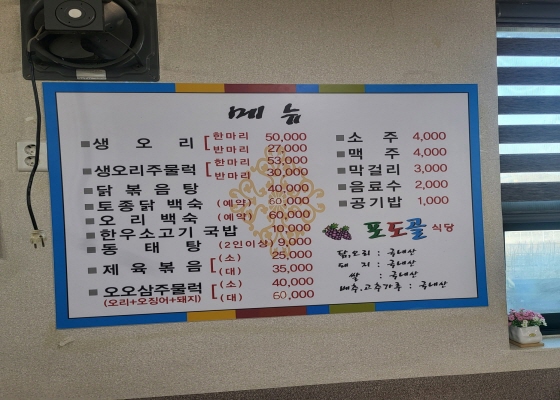 메뉴
생오리 한마리 50,000
반마리 27,000
생오리주물럭 한마리 53,000
반마리 30,000
닭볶음탕 40,000
토종닭 백숙 (예약) 60,000
오리 백숙 (예약) 60,000
한우소고기 국밥 10,000
동태탕 (2인이상) 9,000
제육볶음 (소) 25,000
(대) 35,000
오오삼주물럭 (소) 40,000
(오리+오징어+돼지) (대) 60,000
소주 4,000
맥주 4,000
막걸리 3,000
음료수 2,000
공기밥 1,000
포도골 식당
닭,오리 : 국내산
돼지 : 국내산
쌀 : 국내산
배추,고추가루 : 국내산